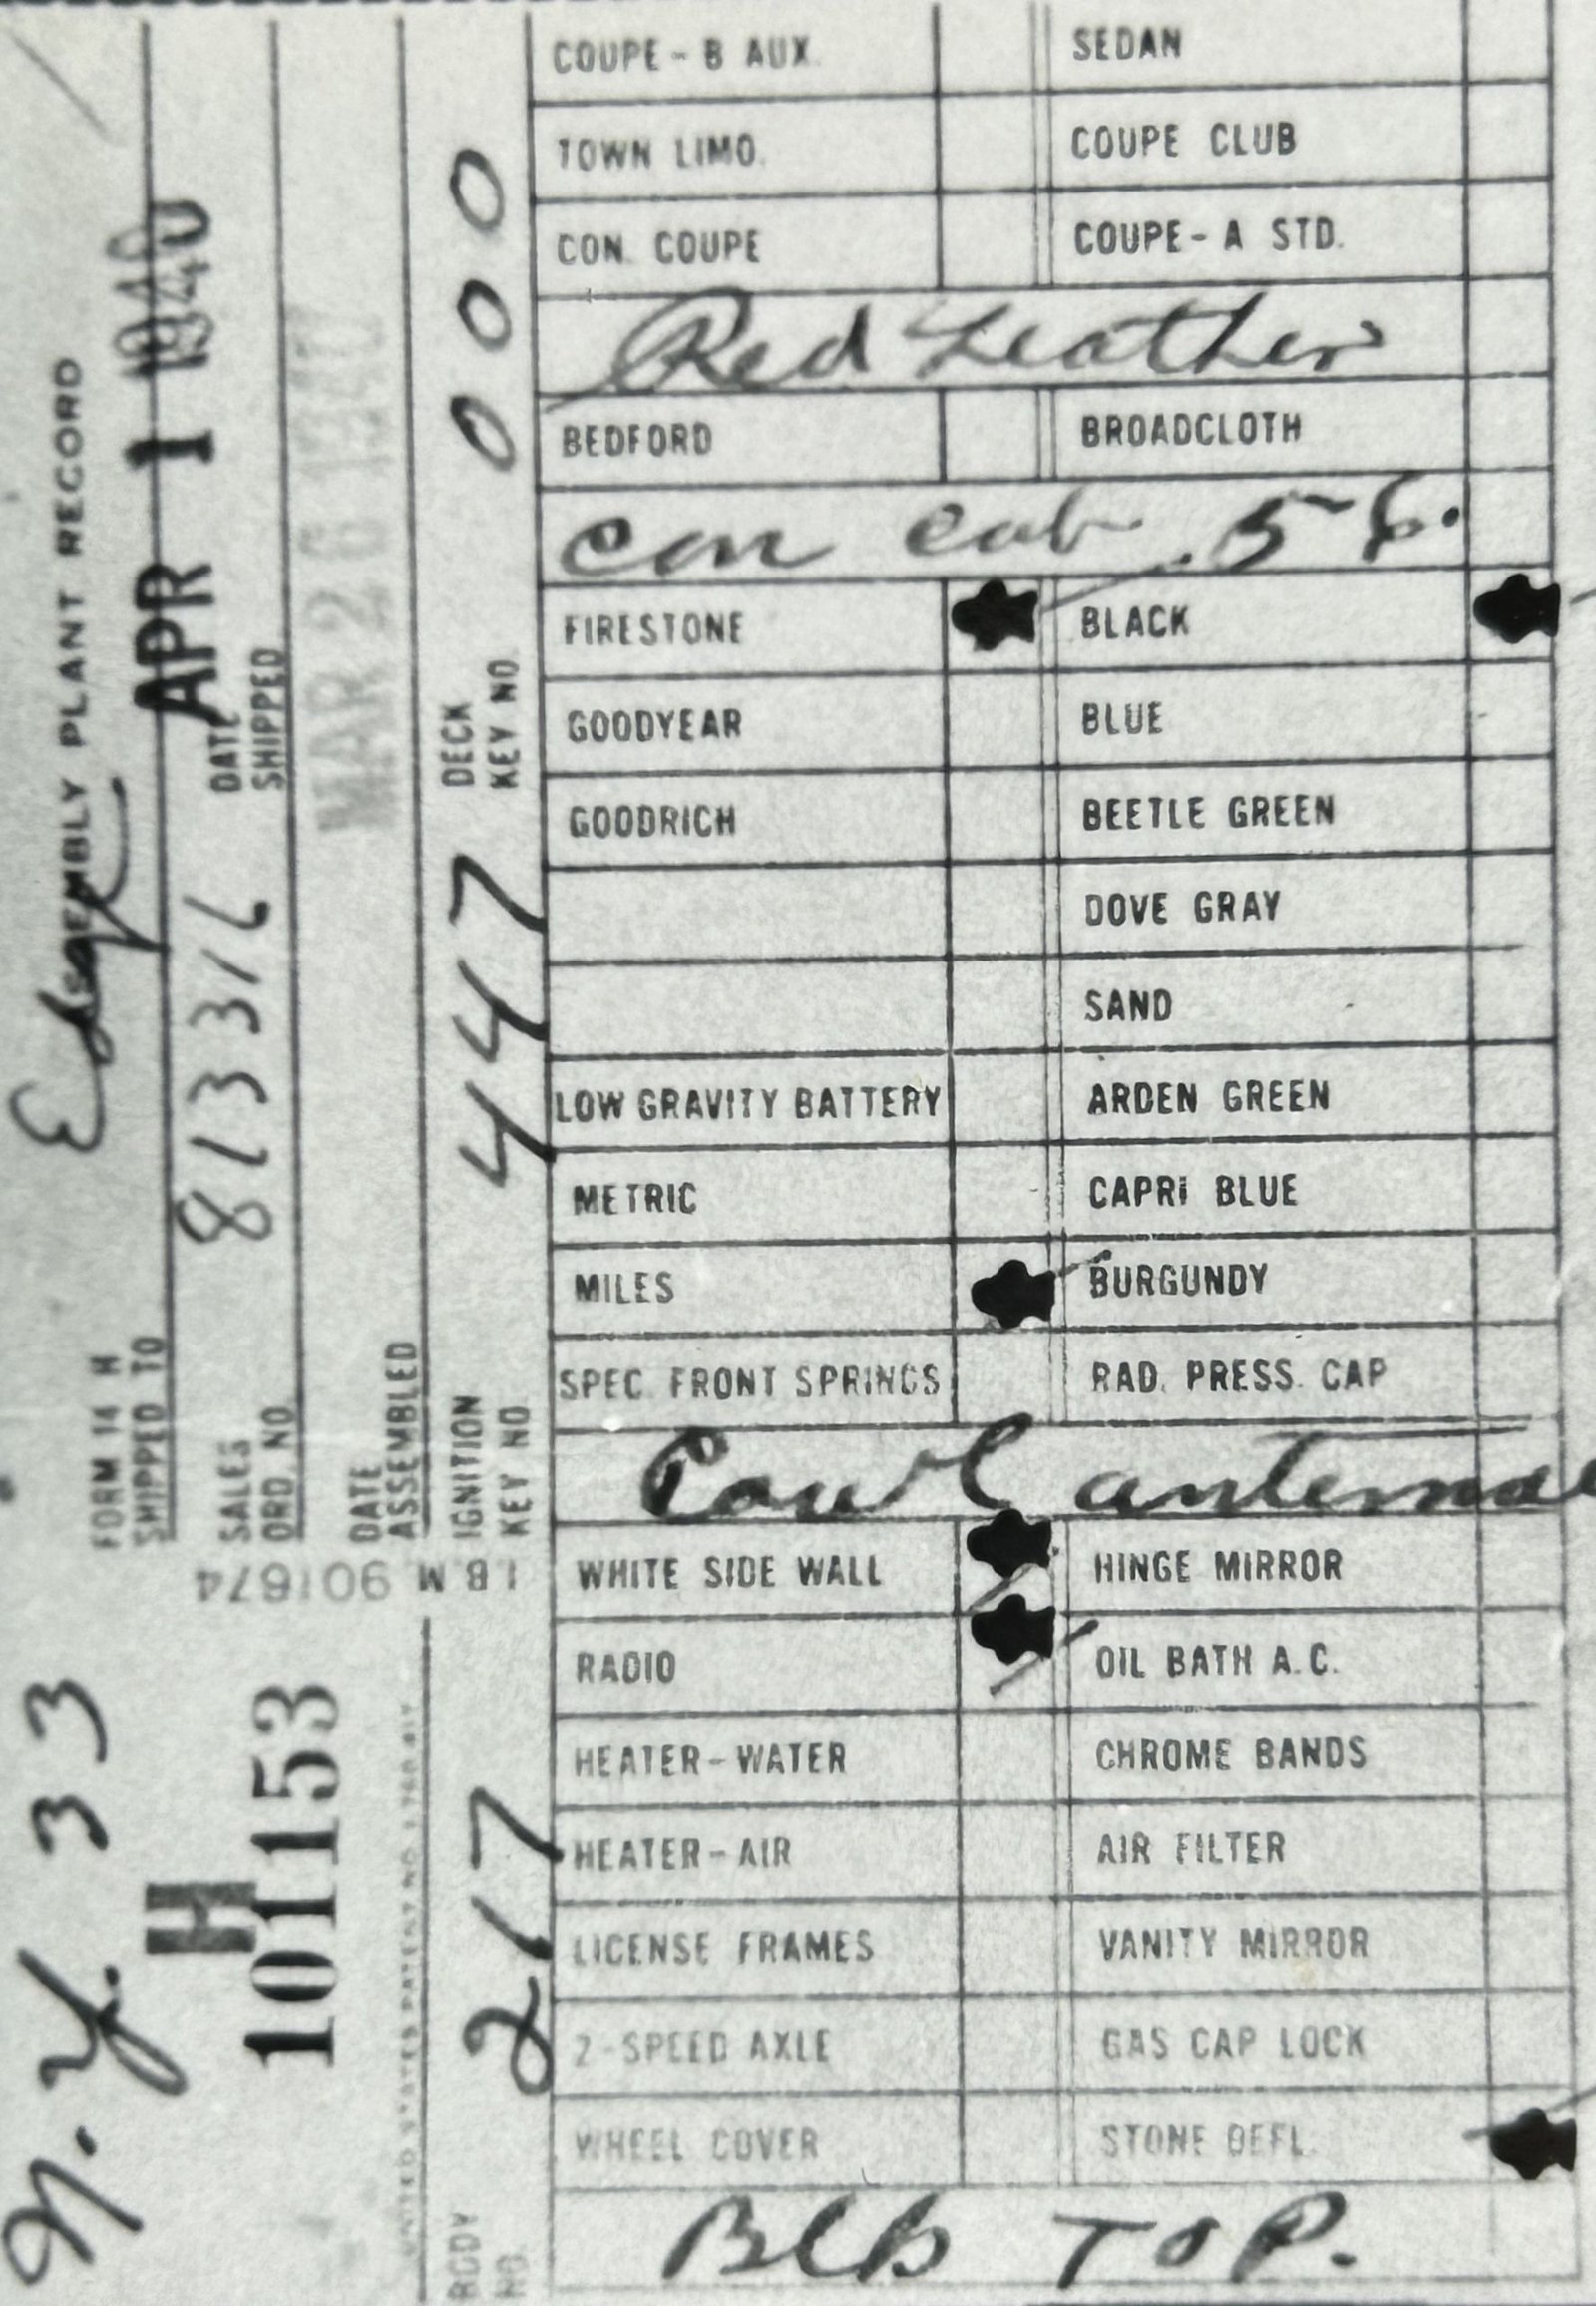 ASSEMBLY PLANT RECORD
FORM 14 H
SHIPPED TO
N. Y. 33
Edgewater
H
101153
APR 1 1940
SALES
ORD. NO.
813316
DATE
SHIPPED
DATE
ASSEMBLED
MAR 26 1940
I.B.M. 901674
UNITED STATES PATENT NO.
BODY
NO.
217
IGNITION
KEY NO.
447
DECK
KEY NO.
000
COUPE - B AUX. SEDAN
TOWN LIMO. COUPE CLUB
CON. COUPE COUPE - A STD.
Red Leather
BEDFORD BROADCLOTH
Con cab. 56.
FIRESTONE BLACK
GOODYEAR BLUE
GOODRICH BEETLE GREEN
DOVE GRAY
SAND
LOW GRAVITY BATTERY ARDEN GREEN
METRIC CAPRI BLUE
MILES BURGUNDY
SPEC. FRONT SPRINGS RAD. PRESS. CAP
Cowl antenna
WHITE SIDE WALL HINGE MIRROR
RADIO OIL BATH A.C.
HEATER - WATER CHROME BANDS
HEATER - AIR AIR FILTER
LICENSE FRAMES VANITY MIRROR
2-SPEED AXLE GAS CAP LOCK
WHEEL COVER STONE DEFL.
Blk TOP.